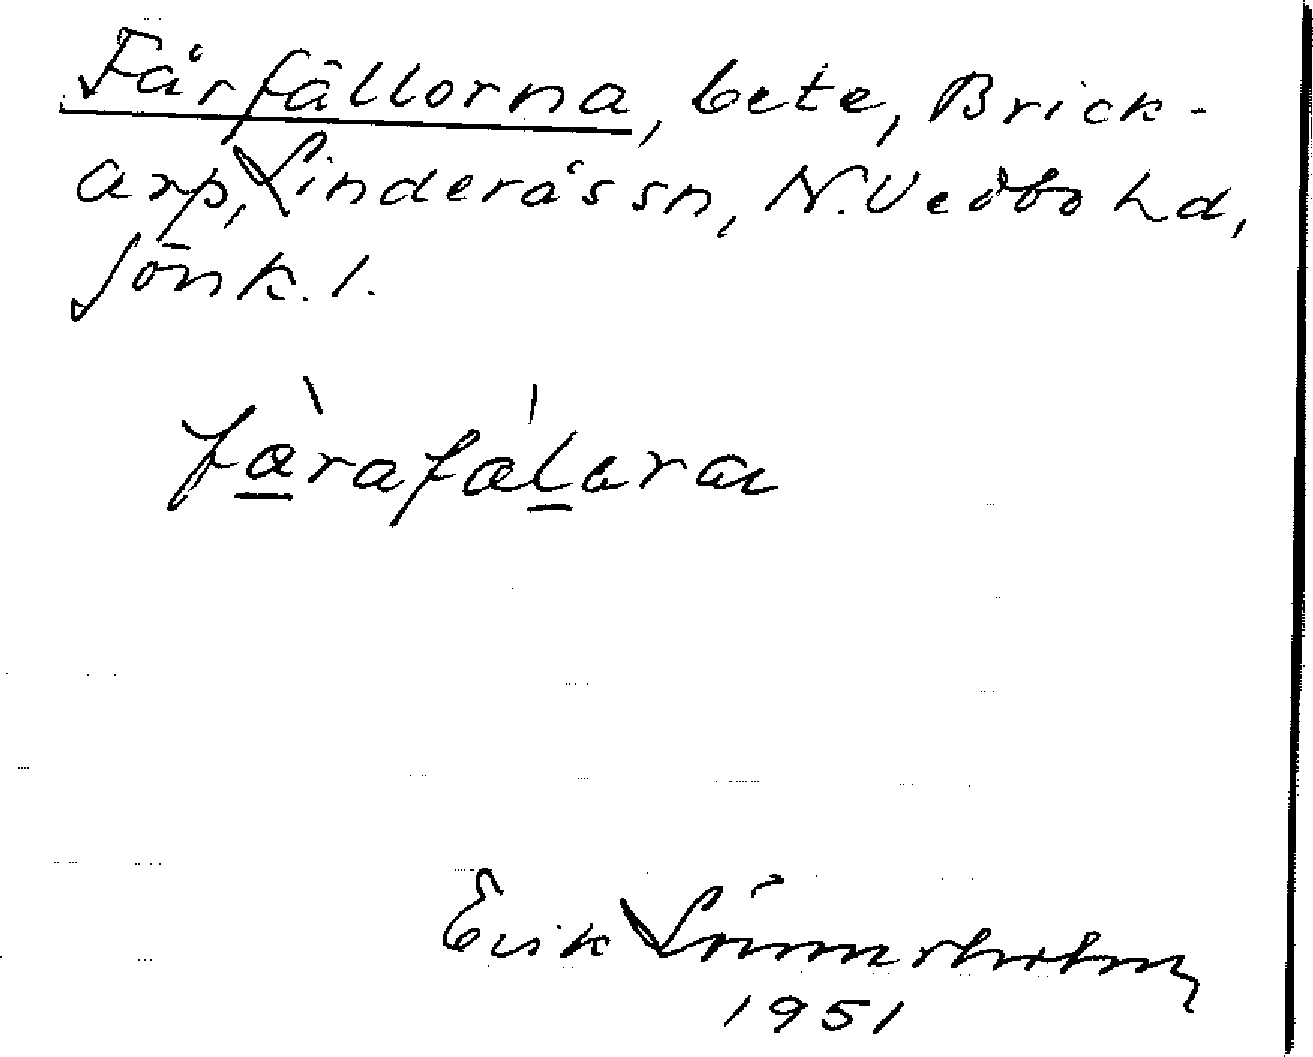 Fårfållorna, bete, Brick-
arp, Linderås sn, N. Vedbo hd,
Jönk. l.
färafålara
Erik Lönnerholm
1951